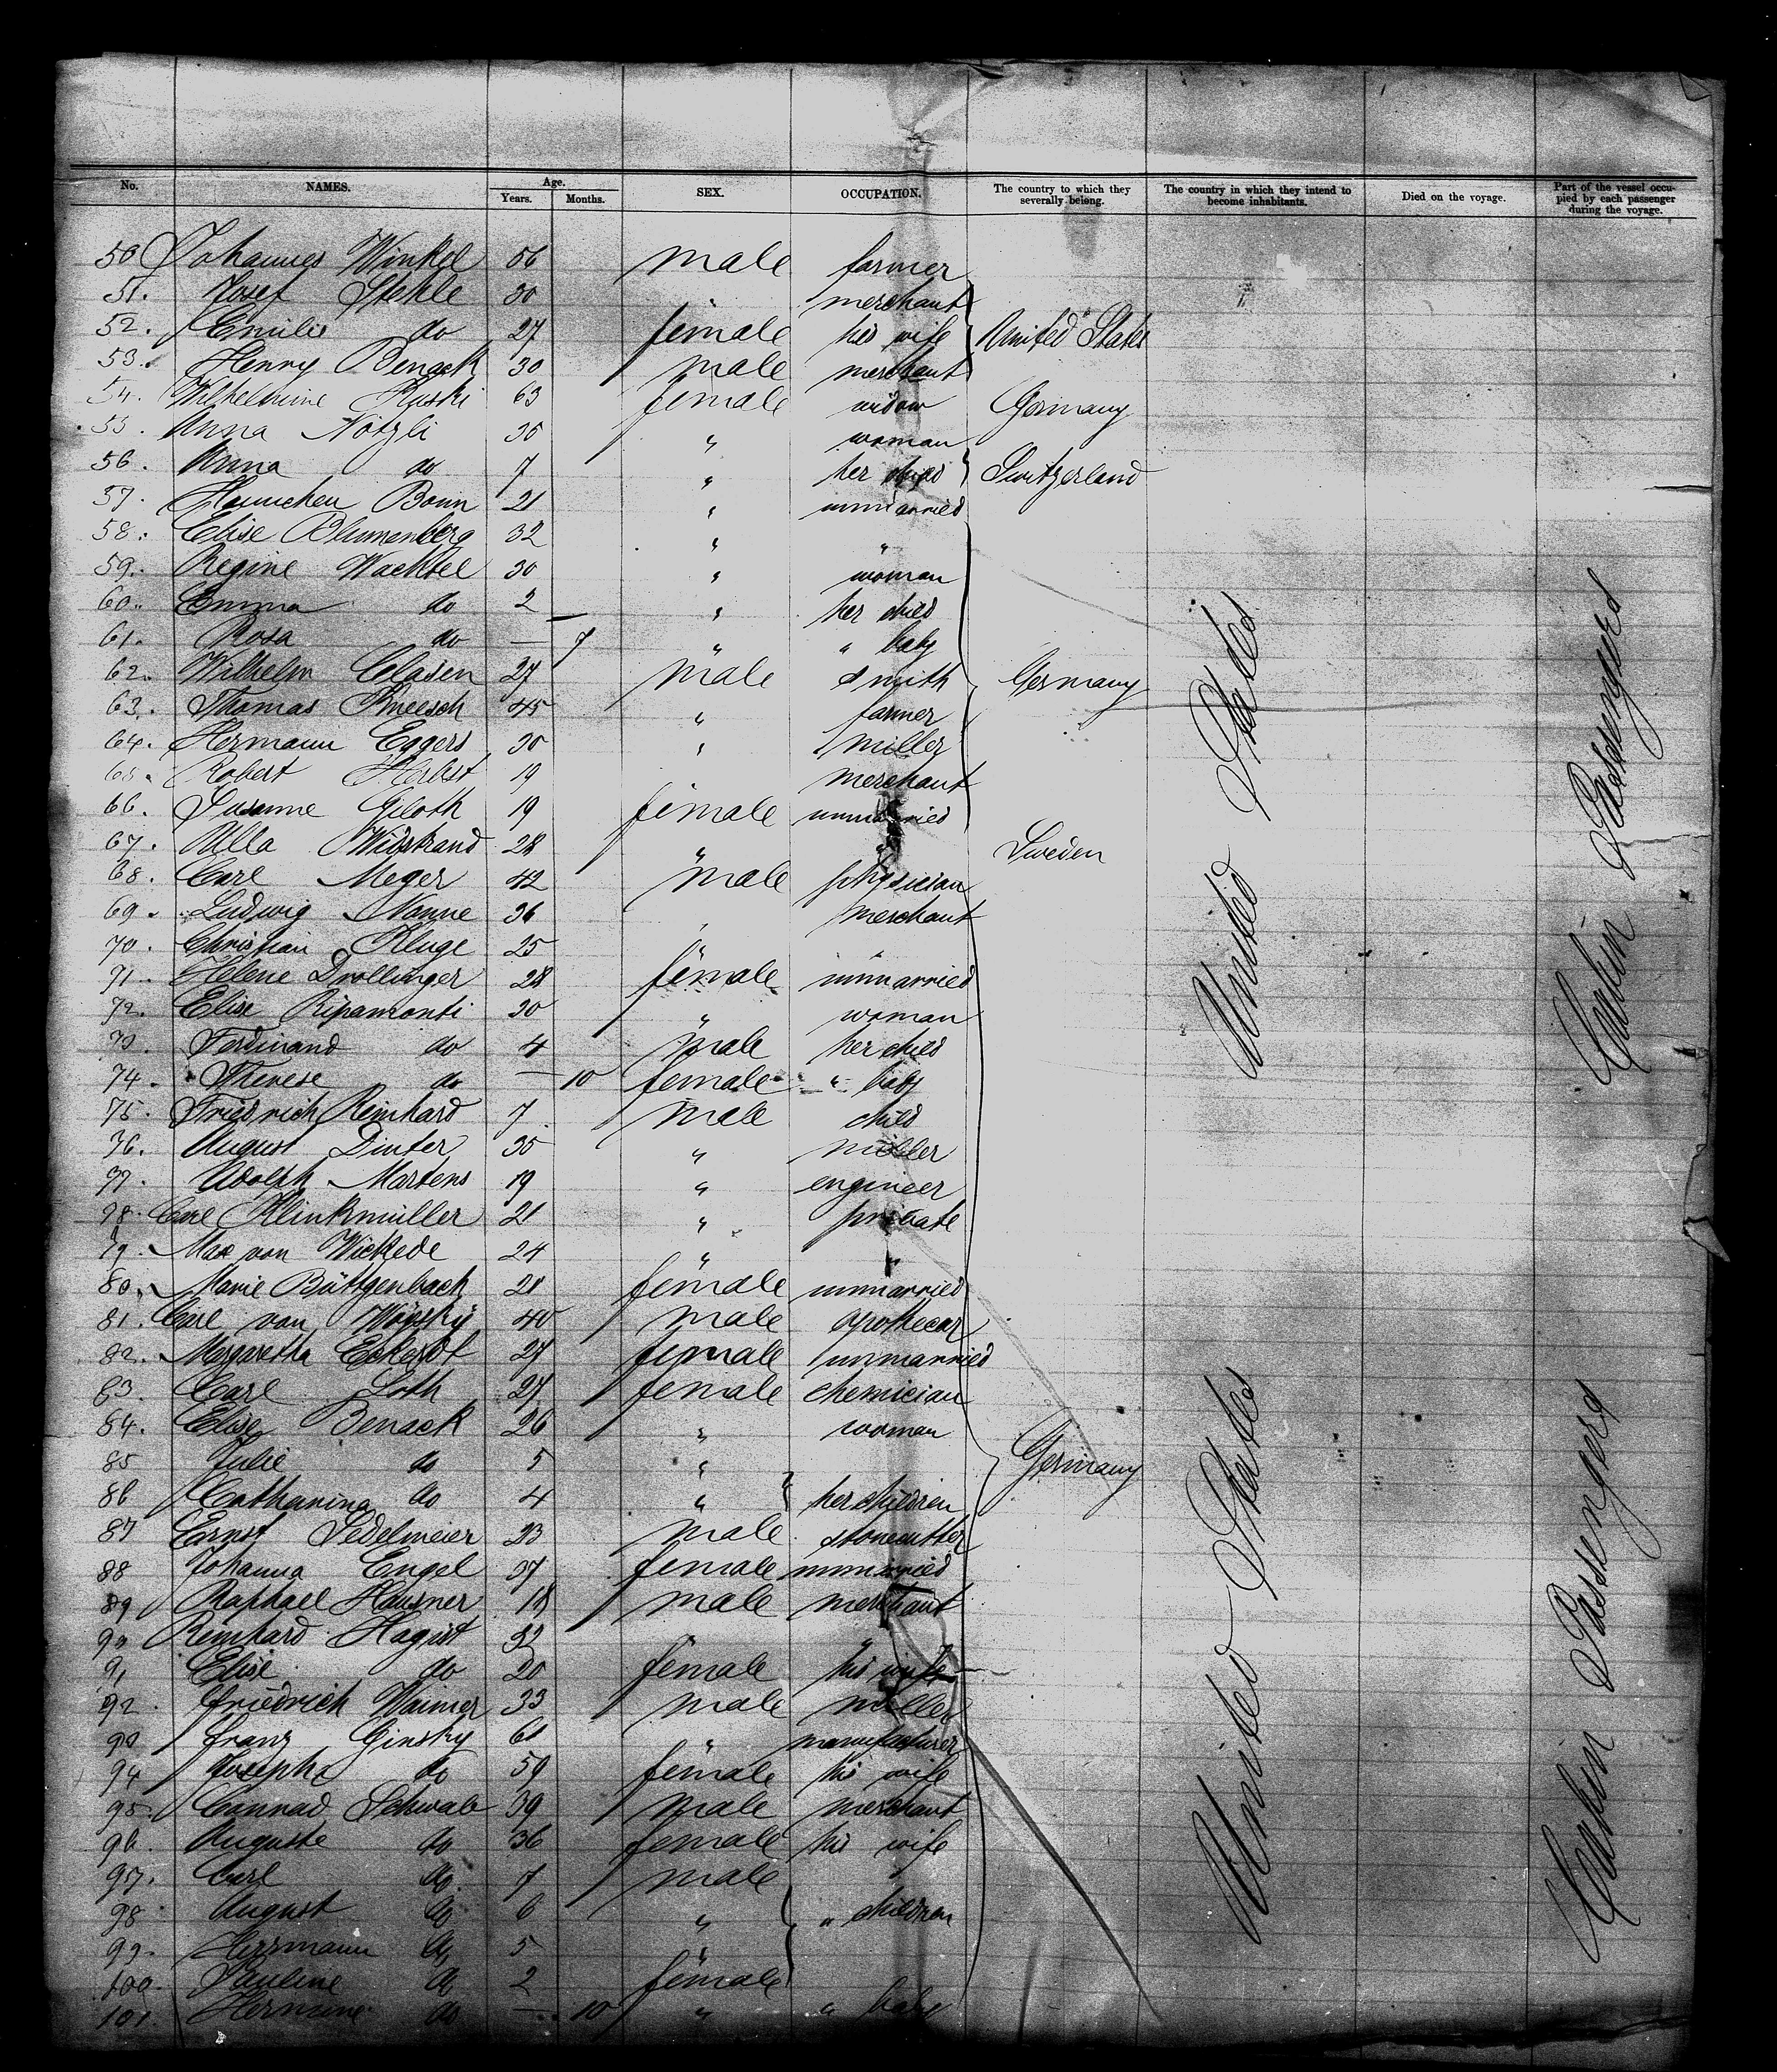 No. NAMES. Age. Years. Months. SEX. OCCUPATION. The country to which they severally belong. The country in which they intend to become inhabitants. Died on the voyage. Part of the vessel occupied by each passenger during the voyage.
50 Johannes Winkel 56 male farmer
51. Josef Stehle 30 " merchant
52. Emilie do 27 female his wife United States
53. Henry Benack 30 male merchant
54. Wilhelmine Ruski 63 female widow Germany
55. Anna Nötzli 30 " woman
56. Anna do 7 " her child Switzerland
57. Hannchen Bonn 21 " unmarried
58. Elise Blumenberg 32 " "
59. Regine Wachtel 30 " woman
60. Emma do 2 " her child
61. Rosa do — 7 " " baby
62. Wilhelm Clasen 27 male smith Germany
63. Thomas Kneesch 45 " farmer
64. Hermann Eggers 30 " miller
65. Robert Herbst 19 " merchant
66. Susanne Giloth 19 female unmarried
67. Ulla Widstrand 28 " " Sweden
68. Carl Meger 42 male physician
69. Ludwig Nonne 36 " merchant
70. Christian Kluge 25 " "
71. Helene Drollinger 28 female unmarried
72. Elise Ripamonti 30 " woman
73. Ferdinand do 4 male her child
74. Therese do — 10 female " baby
75. Friedrich Reinhard 7 male child
76. August Dinter 35 " miller
77. Adolph Martens 19 " engineer
78. Carl Klinkmüller 21 " private
79. Max von Wickede 24 " "
80. Marie Büttgenbach 21 female unmarried
81. Carl von 40 male apothecar
82. Margaretha Eckardt 27 female unmarried
83. Carl Loth 27 female chemician
84. Elise Benack 26 " woman
85 Julie do 5 "
86 Catharina do 4 " her children Germany
87 Ernst Sedelmeier 23 male stonecutter
88 Johanna Engel 37 female unmarried
89 Raphael Hausner 18 male merchant
90 Reinhard Hagist 32 " "
91 Elise do 20 female his wife
92. Friedrich Waimer 33 male miller
93 Franz Ginsky 61 " manufacturer
94 Josepha do 59 female his wife
95. Connad Schwab 39 male merchant
96. Auguste do 36 female his wife
97. Carl do 7 male
98 August do 6 " " children
99. Herrmann do 5 "
100. Pauline do 2 female
101. Hermine do — 10 " " baby
United States
Cabin Passengers
United States
Cabin Passengers